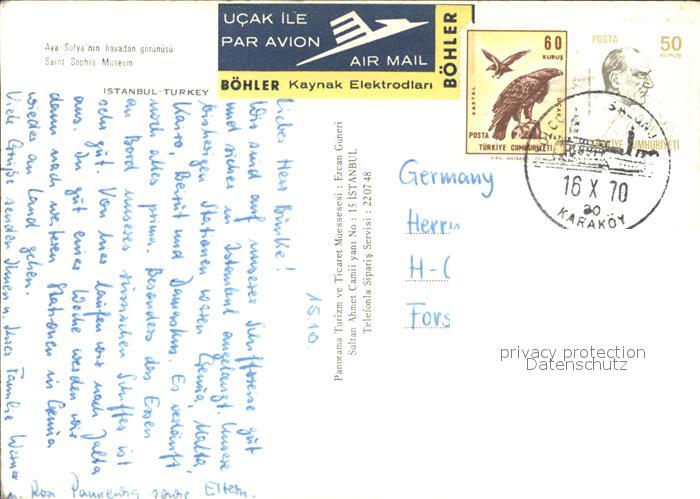 Aya Sofya'nın havadan görünüsü
Saint Sophia Museum
ISTANBUL-TURKEY
UÇAK İLE
PAR AVION
AIR MAIL
BÖHLER Kaynak Elektrodları
BÖHLER
60
KURUŞ
KARTAL
POSTA
TÜRKİYE CUMHURİYETİ
POSTA
50
KURUŞ
TÜRKİYE CUMHURİYETİ
16 X 70
20
KARAKÖY
15.10.
Lieber Herr Binke!
Wir sind auf unserer Schiffsreise gut
und sicher in Istanbul angelangt. Unsere
bisherigen Stationen waren Genua, Malta,
Kairo, Beirut und Damaskus. Es verläuft
noch alles prima. Besonders das Essen
an Bord unseres russischen Schiffes ist
sehr gut. Von hier laufen wir nach Jalta
aus. In gut einer Woche werden wir
dann nach weiteren Stationen in Genua
wieder an Land gehen.
Viele Grüße senden Ihnen u. Ihrer Familie Werner
u. Rosi sowie Eltern.
Panorama Turizm ve Ticaret Müessesesi : Ercan Güneri
Sultan Ahmet Camii yanı No : 15 İSTANBUL
Telefonla Sipariş Servisi : 22 07 48
Germany
Herrn
H-
Fors
privacy protection
Datenschutz